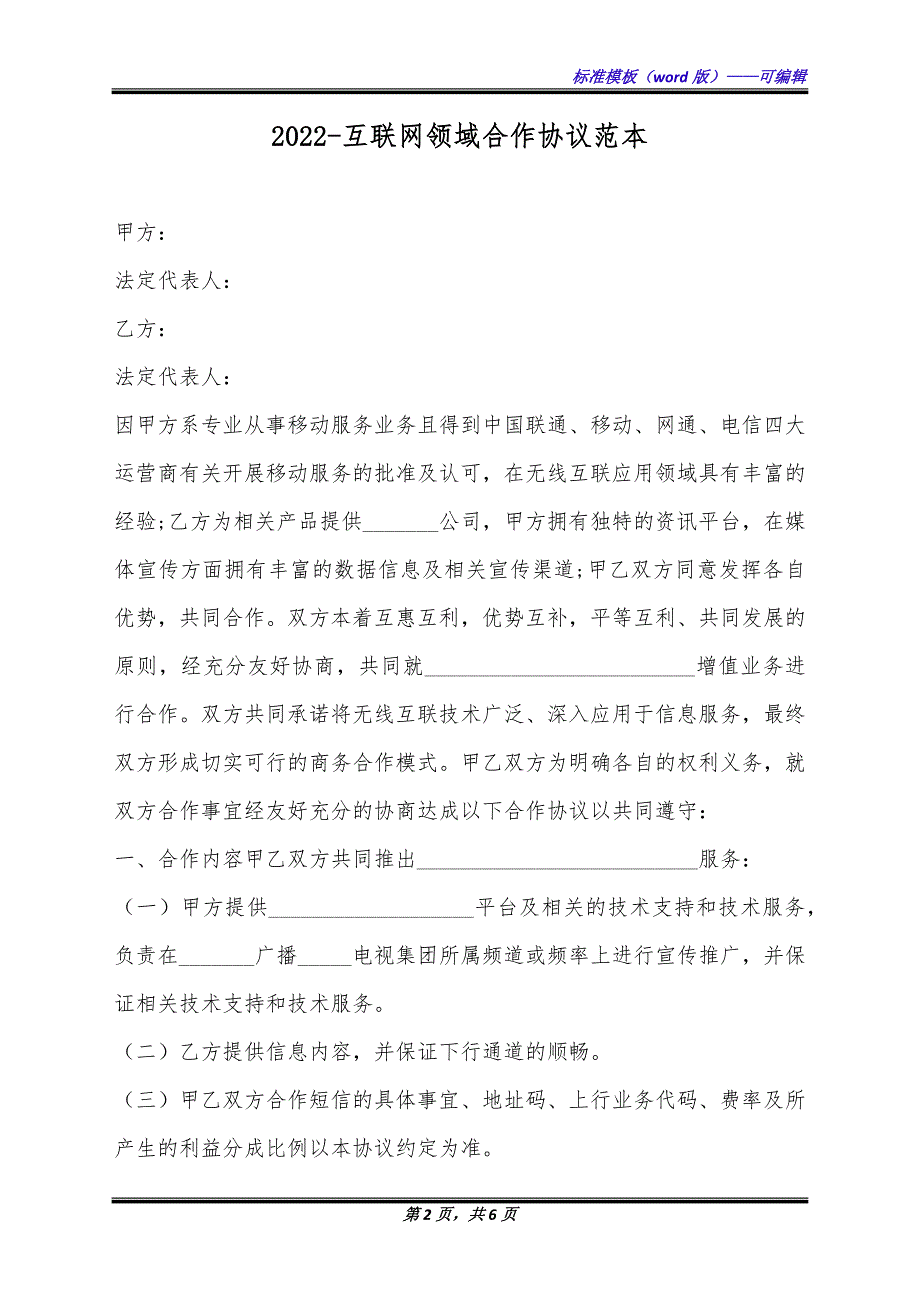 标准模板（word 版）——可编辑
2022-互联网领域合作协议范本
甲方：
法定代表人：
乙方：
法定代表人：
因甲方系专业从事移动服务业务且得到中国联通、移动、网通、电信四大
运营商有关开展移动服务的批准及认可，在无线互联应用领域具有丰富的
经验;乙方为相关产品提供_______公司，甲方拥有独特的资讯平台，在媒
体宣传方面拥有丰富的数据信息及相关宣传渠道;甲乙双方同意发挥各自
优势，共同合作。双方本着互惠互利，优势互补，平等互利、共同发展的
原则，经充分友好协商，共同就_________________________增值业务进
行合作。双方共同承诺将无线互联技术广泛、深入应用于信息服务，最终
双方形成切实可行的商务合作模式。甲乙双方为明确各自的权利义务，就
双方合作事宜经友好充分的协商达成以下合作协议以共同遵守：
一、合作内容甲乙双方共同推出__________________________服务：
（一）甲方提供___________________平台及相关的技术支持和技术服务，
负责在_______广播_____电视集团所属频道或频率上进行宣传推广，并保
证相关技术支持和技术服务。
（二）乙方提供信息内容，并保证下行通道的顺畅。
（三）甲乙双方合作短信的具体事宜、地址码、上行业务代码、费率及所
产生的利益分成比例以本协议约定为准。
第 2 页，共 6 页